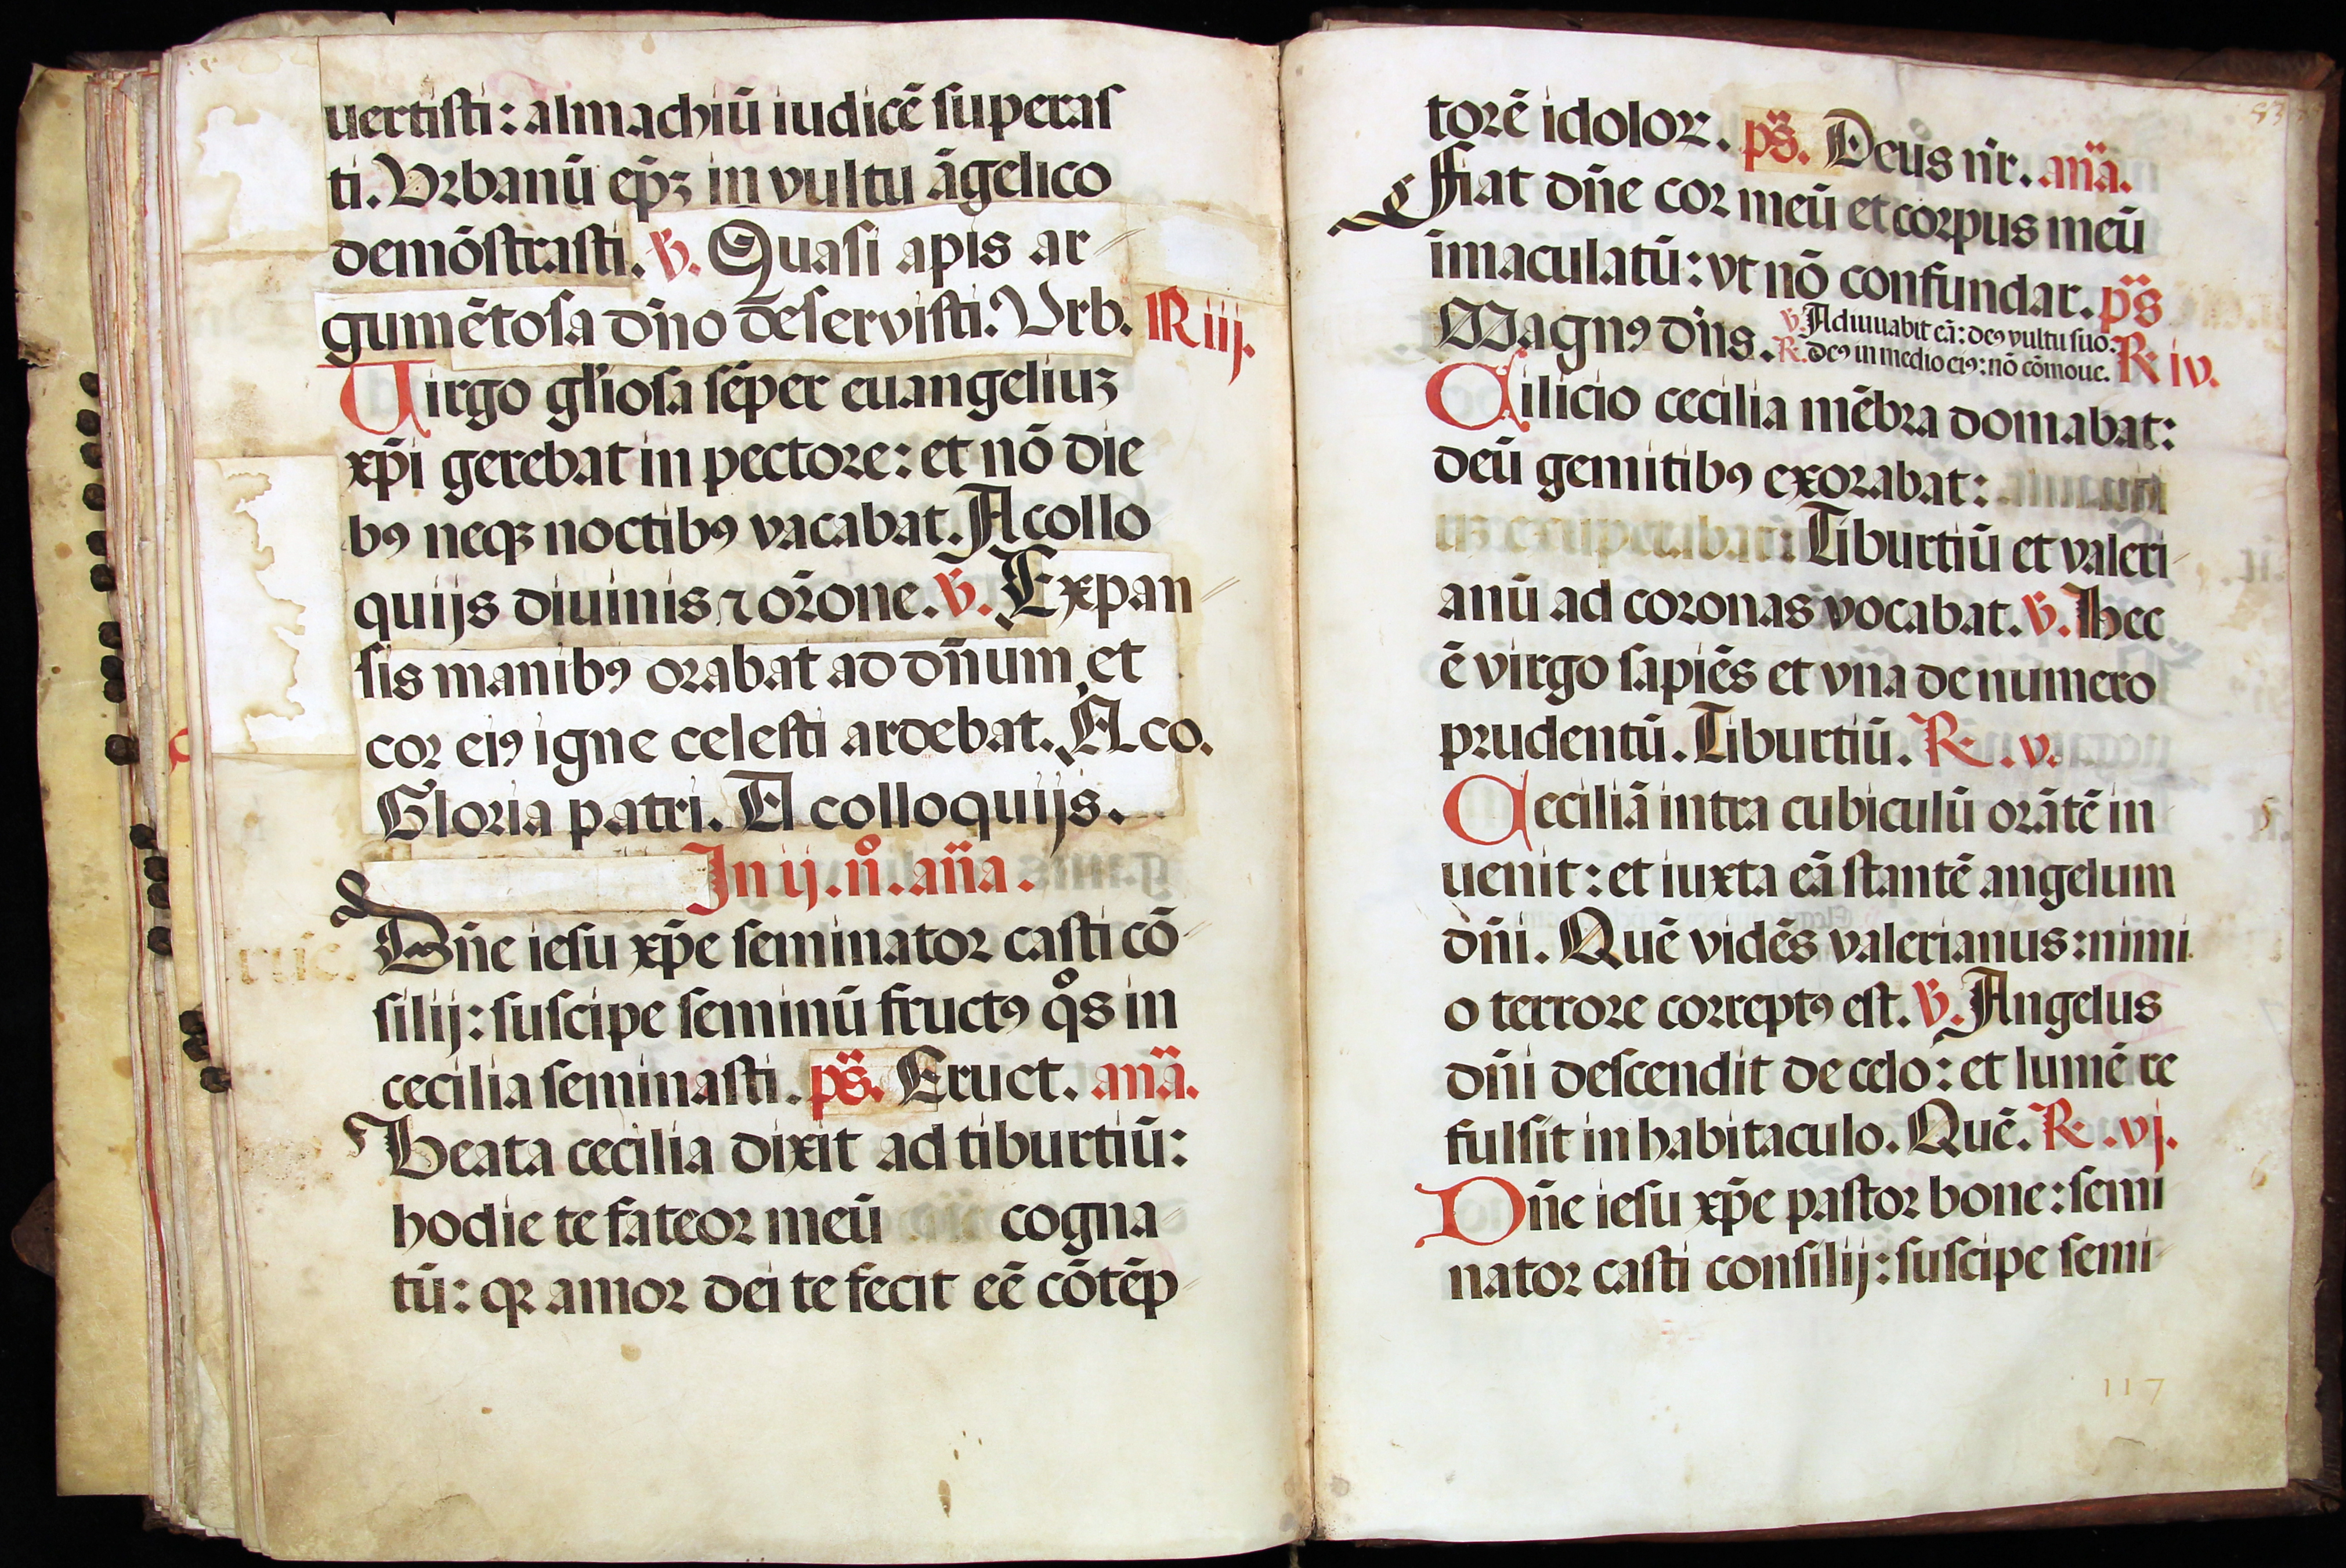 uertisti: almachiū iudicē superas
ti. Vrbanū ep̄ꝫ in vultu āgelico
demōstrasti. ꝟ. Quasi apis ar
gumētosa dn̄o deservisti. Vrb. R iij.
Uirgo gl'iosa sēper euangeliuꝫ
xp̄i gerebat in pectore: et nō die
bꝰ neqꝫ noctibꝰ vacabat. A collo
quijs diuinis ⁊ or̄one. ꝟ. Expan
sis manibꝰ orabat ad dn̄um et
cor eiꝰ igne celesti ardebat. A co.
Gloria patri. A colloquijs.
In ij. n̊. an̄a.
Dn̄e iesu xp̄e seminator casti cō
silij: suscipe seminū fructꝰ q̊s in
cecilia seminasti. ps̄. Eruct. an̄a.
Beata cecilia dixit ad tiburtiū:
hodie te fateor meū cogna
tū: qꝛ amor dei te fecit eē cōtēp
83
torē idoloꝝ. ps̄. Deus nr̄. an̄a.
Fiat dn̄e cor meū et corpus meū
īmaculatū: vt nō confundar. ps̄
Magnꝰ dn̄s. ꝟ. Adiuuabit eā: deꝰ vultu suo:
R. deꝰ in medio eiꝰ: nō cōmoue. R iv.
Cilicio cecilia mēbra domabat:
deū gemitibꝰ exorabat:
uꝫ exuperabat: Tiburtiū et valeri
anū ad coronas vocabat. ꝟ. Hec
ē virgo sapiēs et vn̄a de numero
prudentū. Tiburtiū. R. v.
Ceciliā intra cubiculū orātē in
uenit: et iuxta eā stantē angelum
dn̄i. Quē vidēs valerianus: nimi
o terrore correptꝰ est. ꝟ. Angelus
dn̄i descendit de celo: et lumē re
fulsit in habitaculo. Quē. R. vj.
Dn̄e iesu xp̄e pastor bone: semi
nator casti consilij: suscipe semi
117